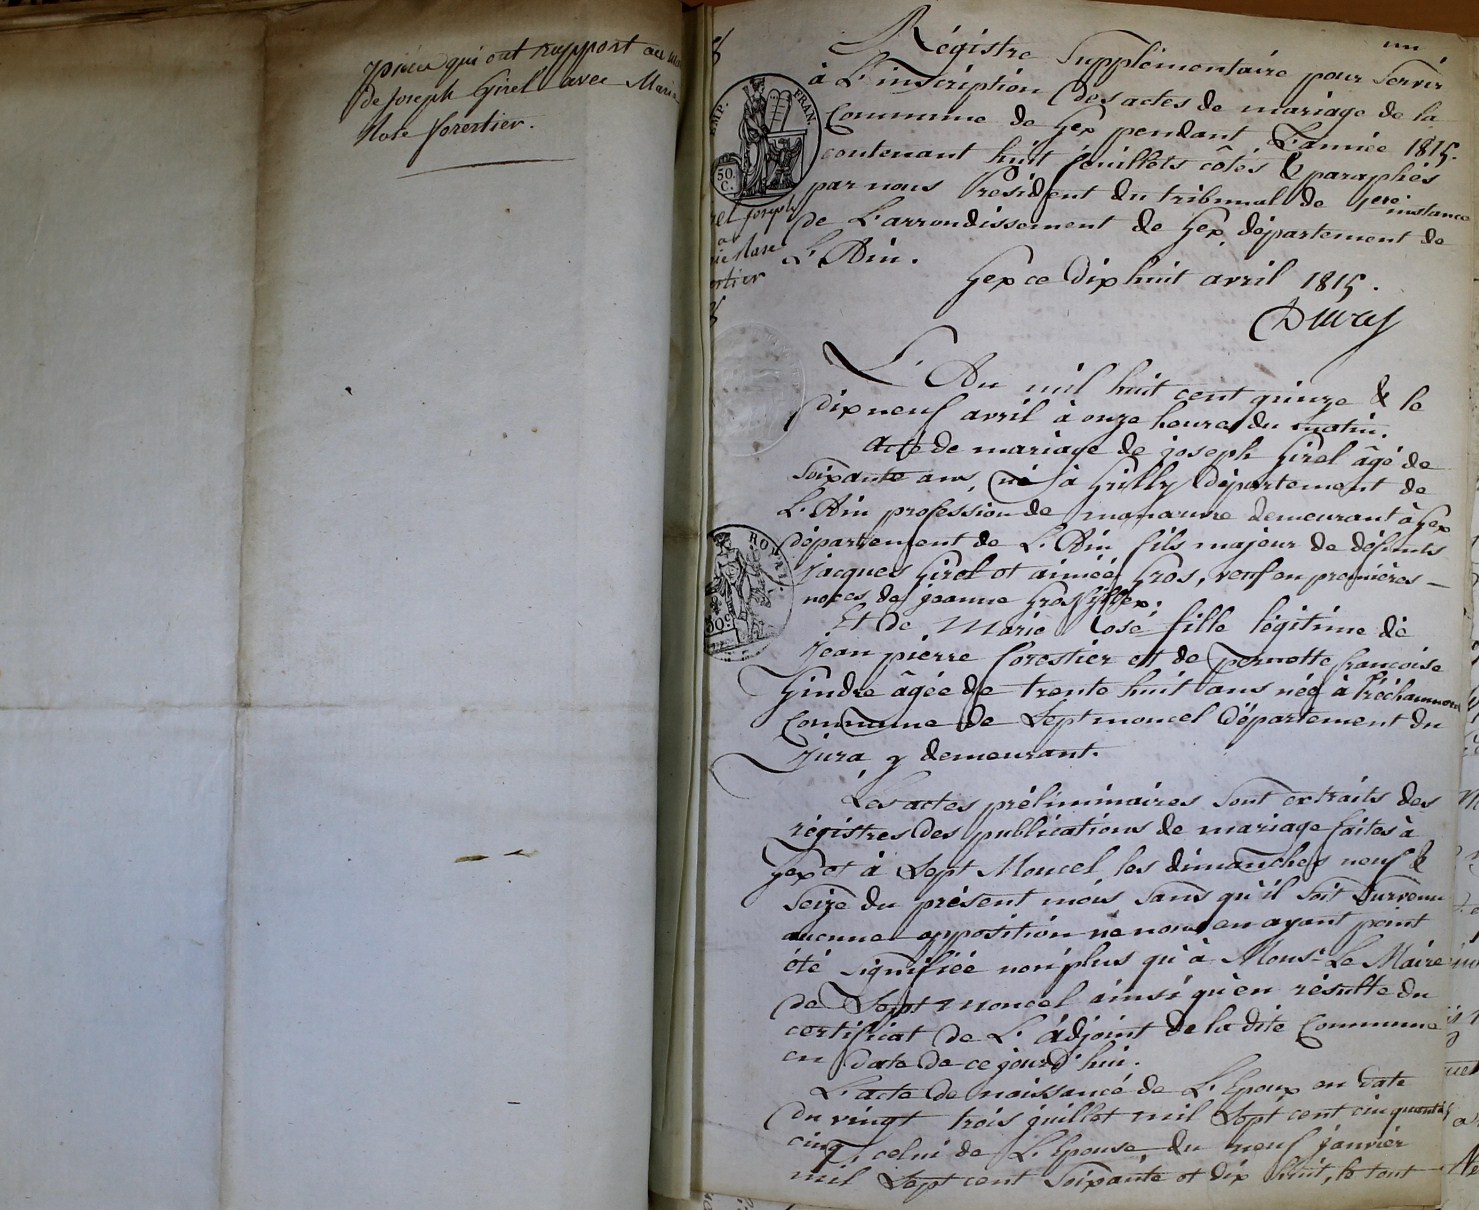 Pièces qui ont rapport au
de Joseph Girel avec Marie
Rose forestier.
un
Régistre Supplémentaire pour Servir
à L'inscription des actes de mariage de la
Commune de Gex pendant L'année 1815.
contenant huit feuillets côtés & paraphés
par nous Président du tribunal de 1ere instance
de L'arrondissement de Gex, département de
L'Ain.
Gex ce Dix huit avril 1815.
EMP. FRAN.
50.
C.
Joseph
L'An mil huit cent quinze & le
dix neuf avril à onze heures du matin.
Acte de mariage de joseph Girel âgé de
soixante ans, né à Grilly département de
L'Ain profession de manœuvre demeurant à Gex
département de L'Ain fils majeur de défunts
Jacques Girel et aimée Gros, veuf en premières
noces de jeanne
Et de Marie Rose fille légitime de
Jean pierre forestier et de pernette françoise
Gindre âgée de trente huit ans née à
Commune de Septmoncel Département du
Jura y demeurant.
ROYAL
Les actes préliminaires sont extraits des
régistres des publications de mariage faites à
Gex et à Sept Moncel les dimanches neuf &
seize du présent mois sans qu'il soit survenu
aucune opposition ne nous en ayant point
été signifiée non plus qu'à Monsr. Le Maire
de Sept moncel ainsi qu'en résulte du
certificat de L'adjoint de la dite Commune
en date de ce jourd'hui.
L'acte de naissance de L'Epoux en date
du vingt trois juillet mil sept cent cinquante
cinq, celui de L'Epouse, du neuf janvier
mil sept cent soixante et dix huit, le tout